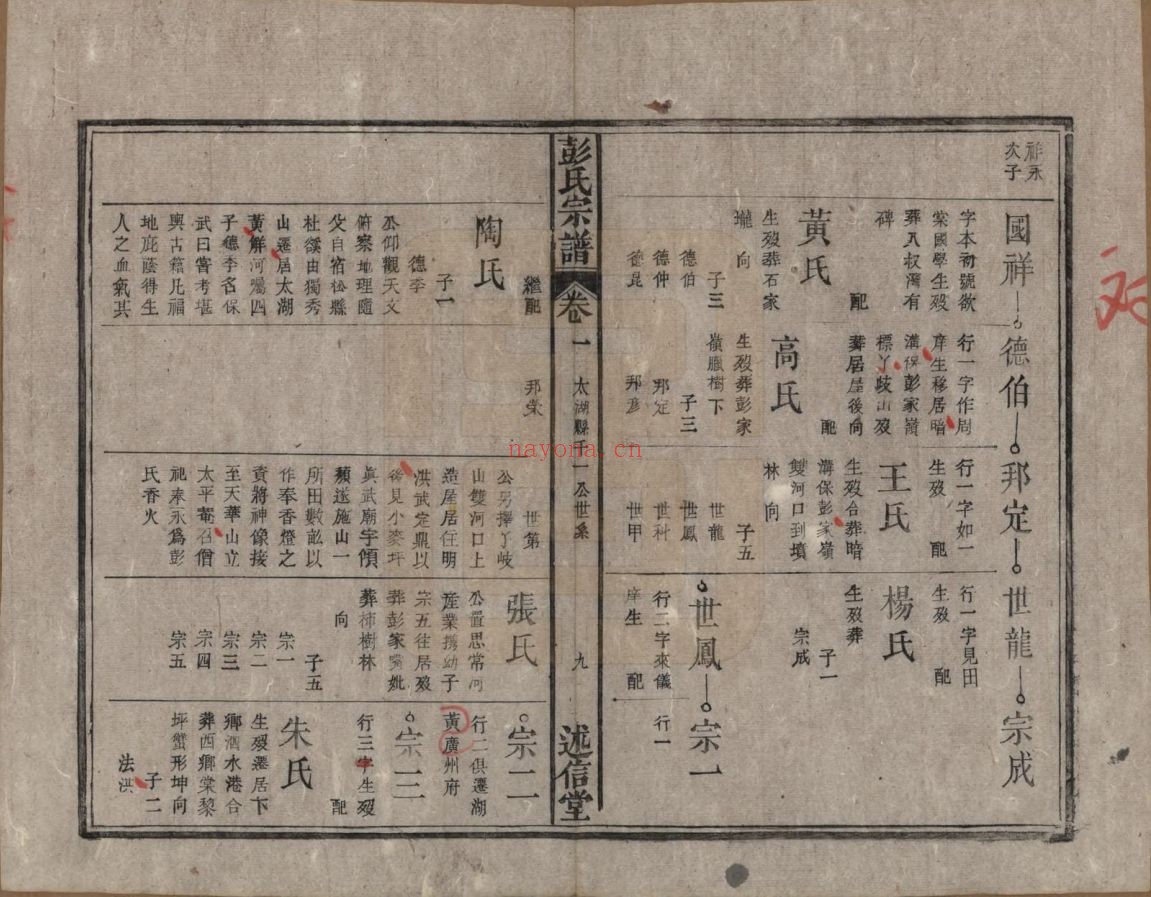 祥永
次子
國祥
字本初號欲
棠國學生歿
葬入杈灣有
碑
配
黃氏
生歿葬石家
瓏向
子三
德伯
德仲
德昆
德伯
行一字作周
庠生移居暗
溝保彭家嶺
標丫歧山歿
葬居屋後向
配
高氏
生歿葬彭家
嶺臘樹下
子三
邦定
邦彥
邦榮
邦定
行一字如一
生歿
配
王氏
生歿合葬暗
溝保彭家嶺
雙河口到墳
林向
子五
世龍
世鳳
世科
世甲
世第
世龍
行一字見田
生歿
配
楊氏
生歿葬
子一
宗成
宗成
世鳳
行二字來儀
庠生
配
宗一
行一
彭氏宗譜
卷一
太湖縣千一公世系
九
述信堂
繼配
陶氏
子一
德季
公仰觀天文
俯察地理隨
父自宿松縣
杜溪由獨秀
山遷居太湖
黃鮮河囑四
子德季名保
武曰嘗考堪
輿古籍凡福
地庇蔭得生
人之血氣其
公另擇丫歧
山雙河口上
造屋居住明
洪武定鼎以
後見小麥坪
眞武廟宇傾
頹遂施山一
所田數畝以
作奉香燈之
資將神像接
至天華山立
太平菴召僧
祀奉永爲彭
氏香火
張氏
公置思常河
産業携幼子
宗五往居歿
葬彭家嘴妣
葬柿樹林
向
子五
宗一
宗二
宗三
宗四
宗五
宗二
行二俱遷湖
黃廣州府
宗三
行三字生歿
配
朱氏
生歿遷居下
鄉泗水港合
葬西鄉棠黎
坪蟹形坤向
子二
法洪
nayona.cn